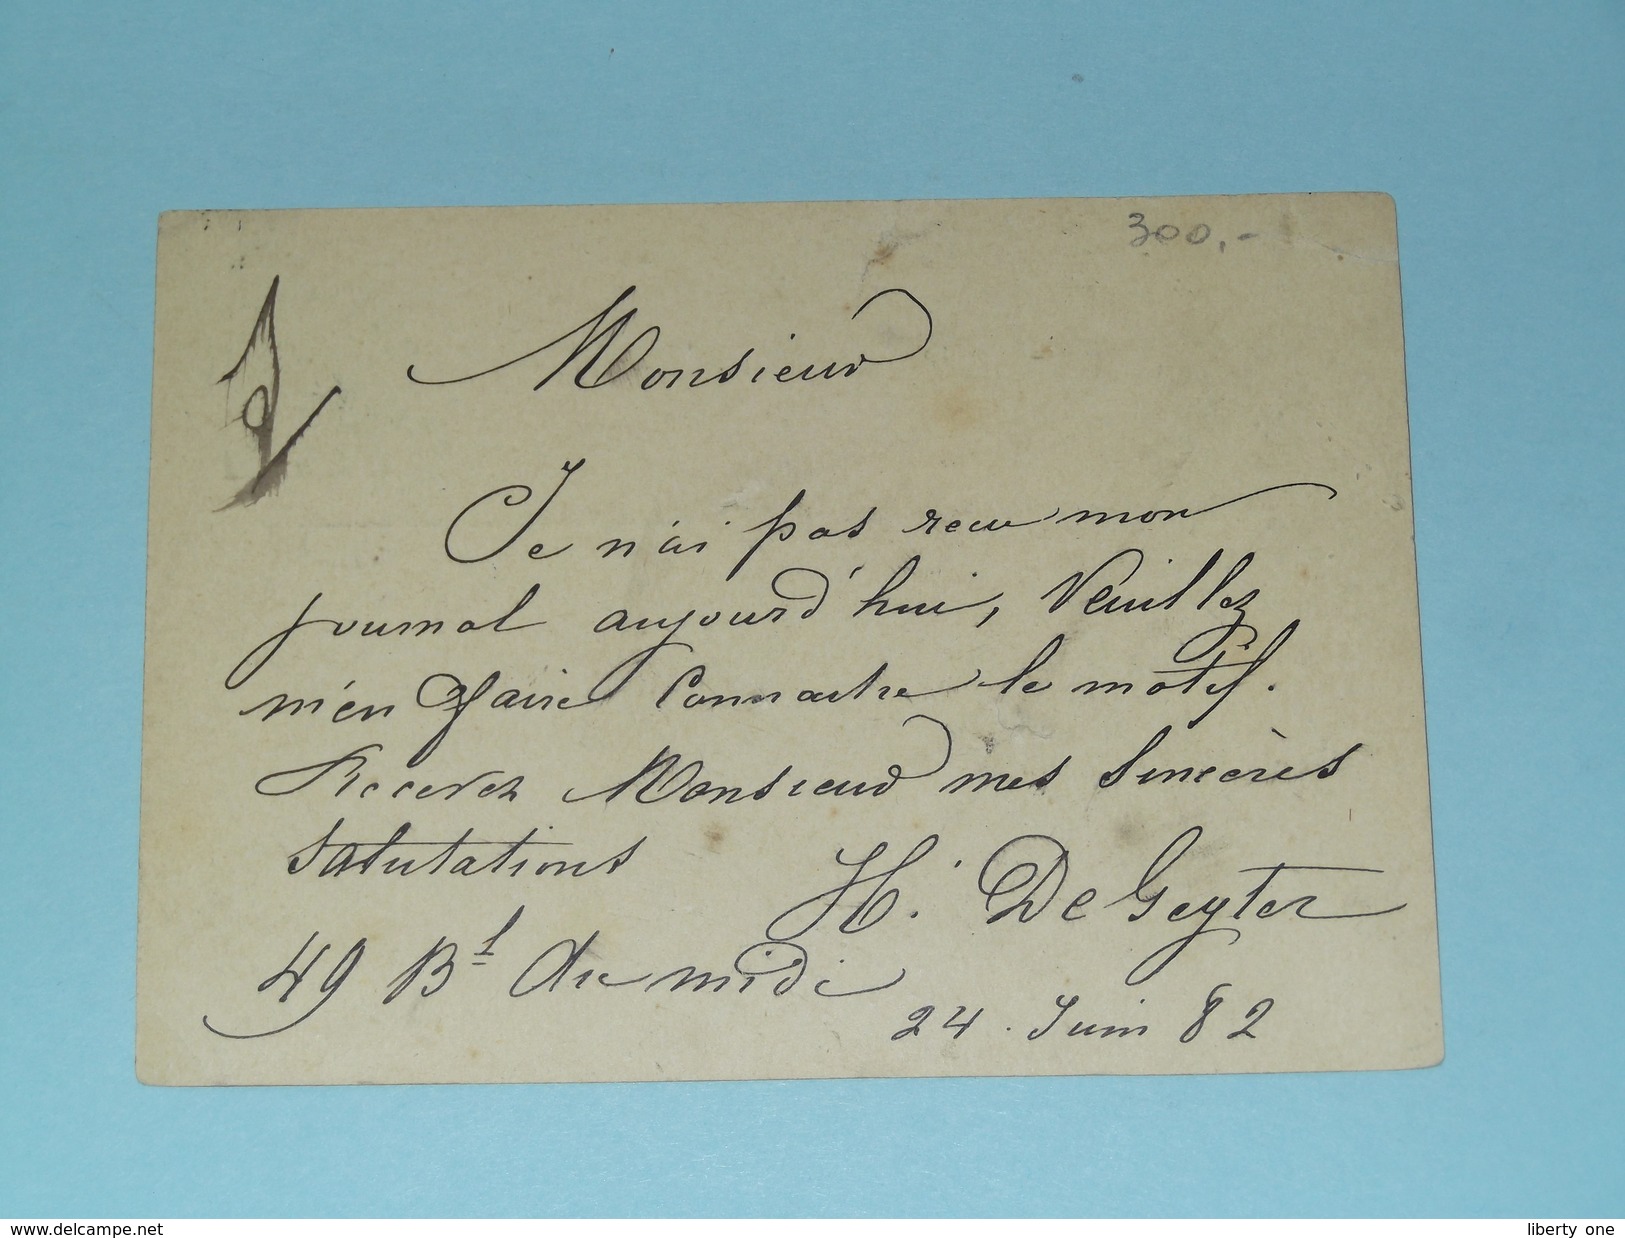 300,-
Monsieur
Je n'ai pas recu mon
journal aujourd'hui, Veuillez
m'en faire Connaitre le motif.
Recevez Monsieur mes Sincères
Salutations
H. De Geyter
49 Bd du midi
24. Juin 82
www.delcampe.net
liberty one